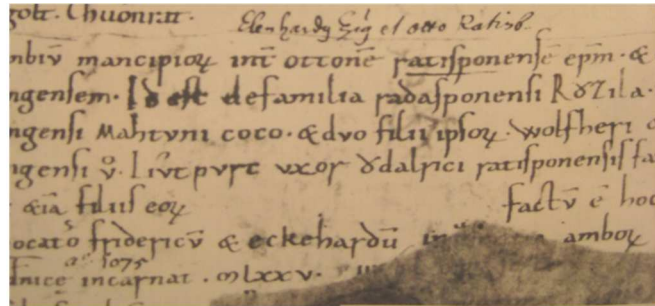 golt. Chuonrat.
Ekenhardg Zig et otto Ratisb.
nbiū mancipioꝝ int̄ ottonē ratisponensē ep̄m. &
ngensem. Id est de familia radasponensi Ruzila.
ngensi Mahtuni coco. & duo filii ipsoꝝ. Wolfheri
ngensi v̊. Liutpurc uxor ŏdalrici ratisponensis fa
&iā filiis eoꝝ factū ē hoc
ocato fridericū & eckehardū in amboꝝ
a.° 1075
nice incarnat. MLXXV.